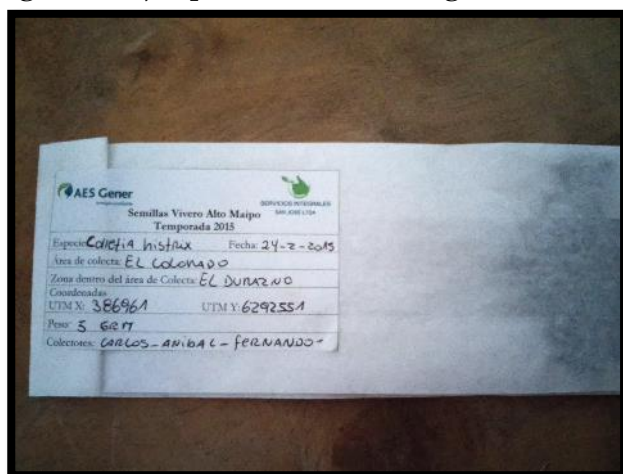 AES Gener
SERVICIOS INTEGRALES
SAN JOSE LTDA
Semillas Vivero Alto Maipo
Temporada 2015
Especie: Colletia histrix Fecha: 24-2-2015
Área de colecta: EL COLORADO
Zona dentro del área de Colecta: EL DURAZNO
Coordenadas
UTM X: 386961 UTM Y: 6292551
Peso: 5 GRM
Colectores: CARLOS - ANIBAL - FERNANDO -